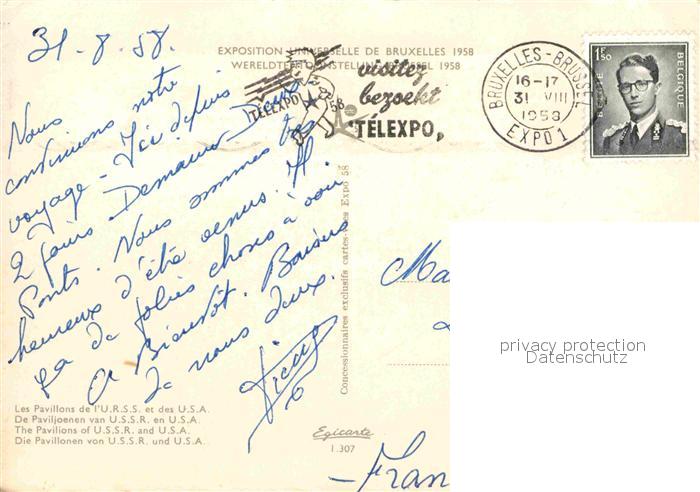 31-8.58.
EXPOSITION UNIVERSELLE DE BRUXELLES 1958
WERELDTENTOONSTELLING BRUSSEL 1958
TÉLEXPO
58
visitez
bezoekt
"TÉLEXPO"
BRUXELLES-BRUSSEL
16-17
31 VIII
1958
EXPO 1
1F50
BELGIE
BELGIQUE
Nous
continuons notre
voyage - Ici depuis
2 jours Demain Deux
Ponts. Nous sommes très
heureux d'être venus. Il
y a de jolies choses à voir
A Bientôt. Baisers
de nous deux.
Concessionnaires exclusifs cartes-vues Expo 58
Ma
privacy protection
Datenschutz
Les Pavillons de l'U.R.S.S. et des U.S.A.
De Paviljoenen van U.S.S.R. en U.S.A.
The Pavilions of U.S.S.R. and U.S.A.
Die Pavillonen von U.S.S.R. und U.S.A.
Egicarte
1.307
-Fran